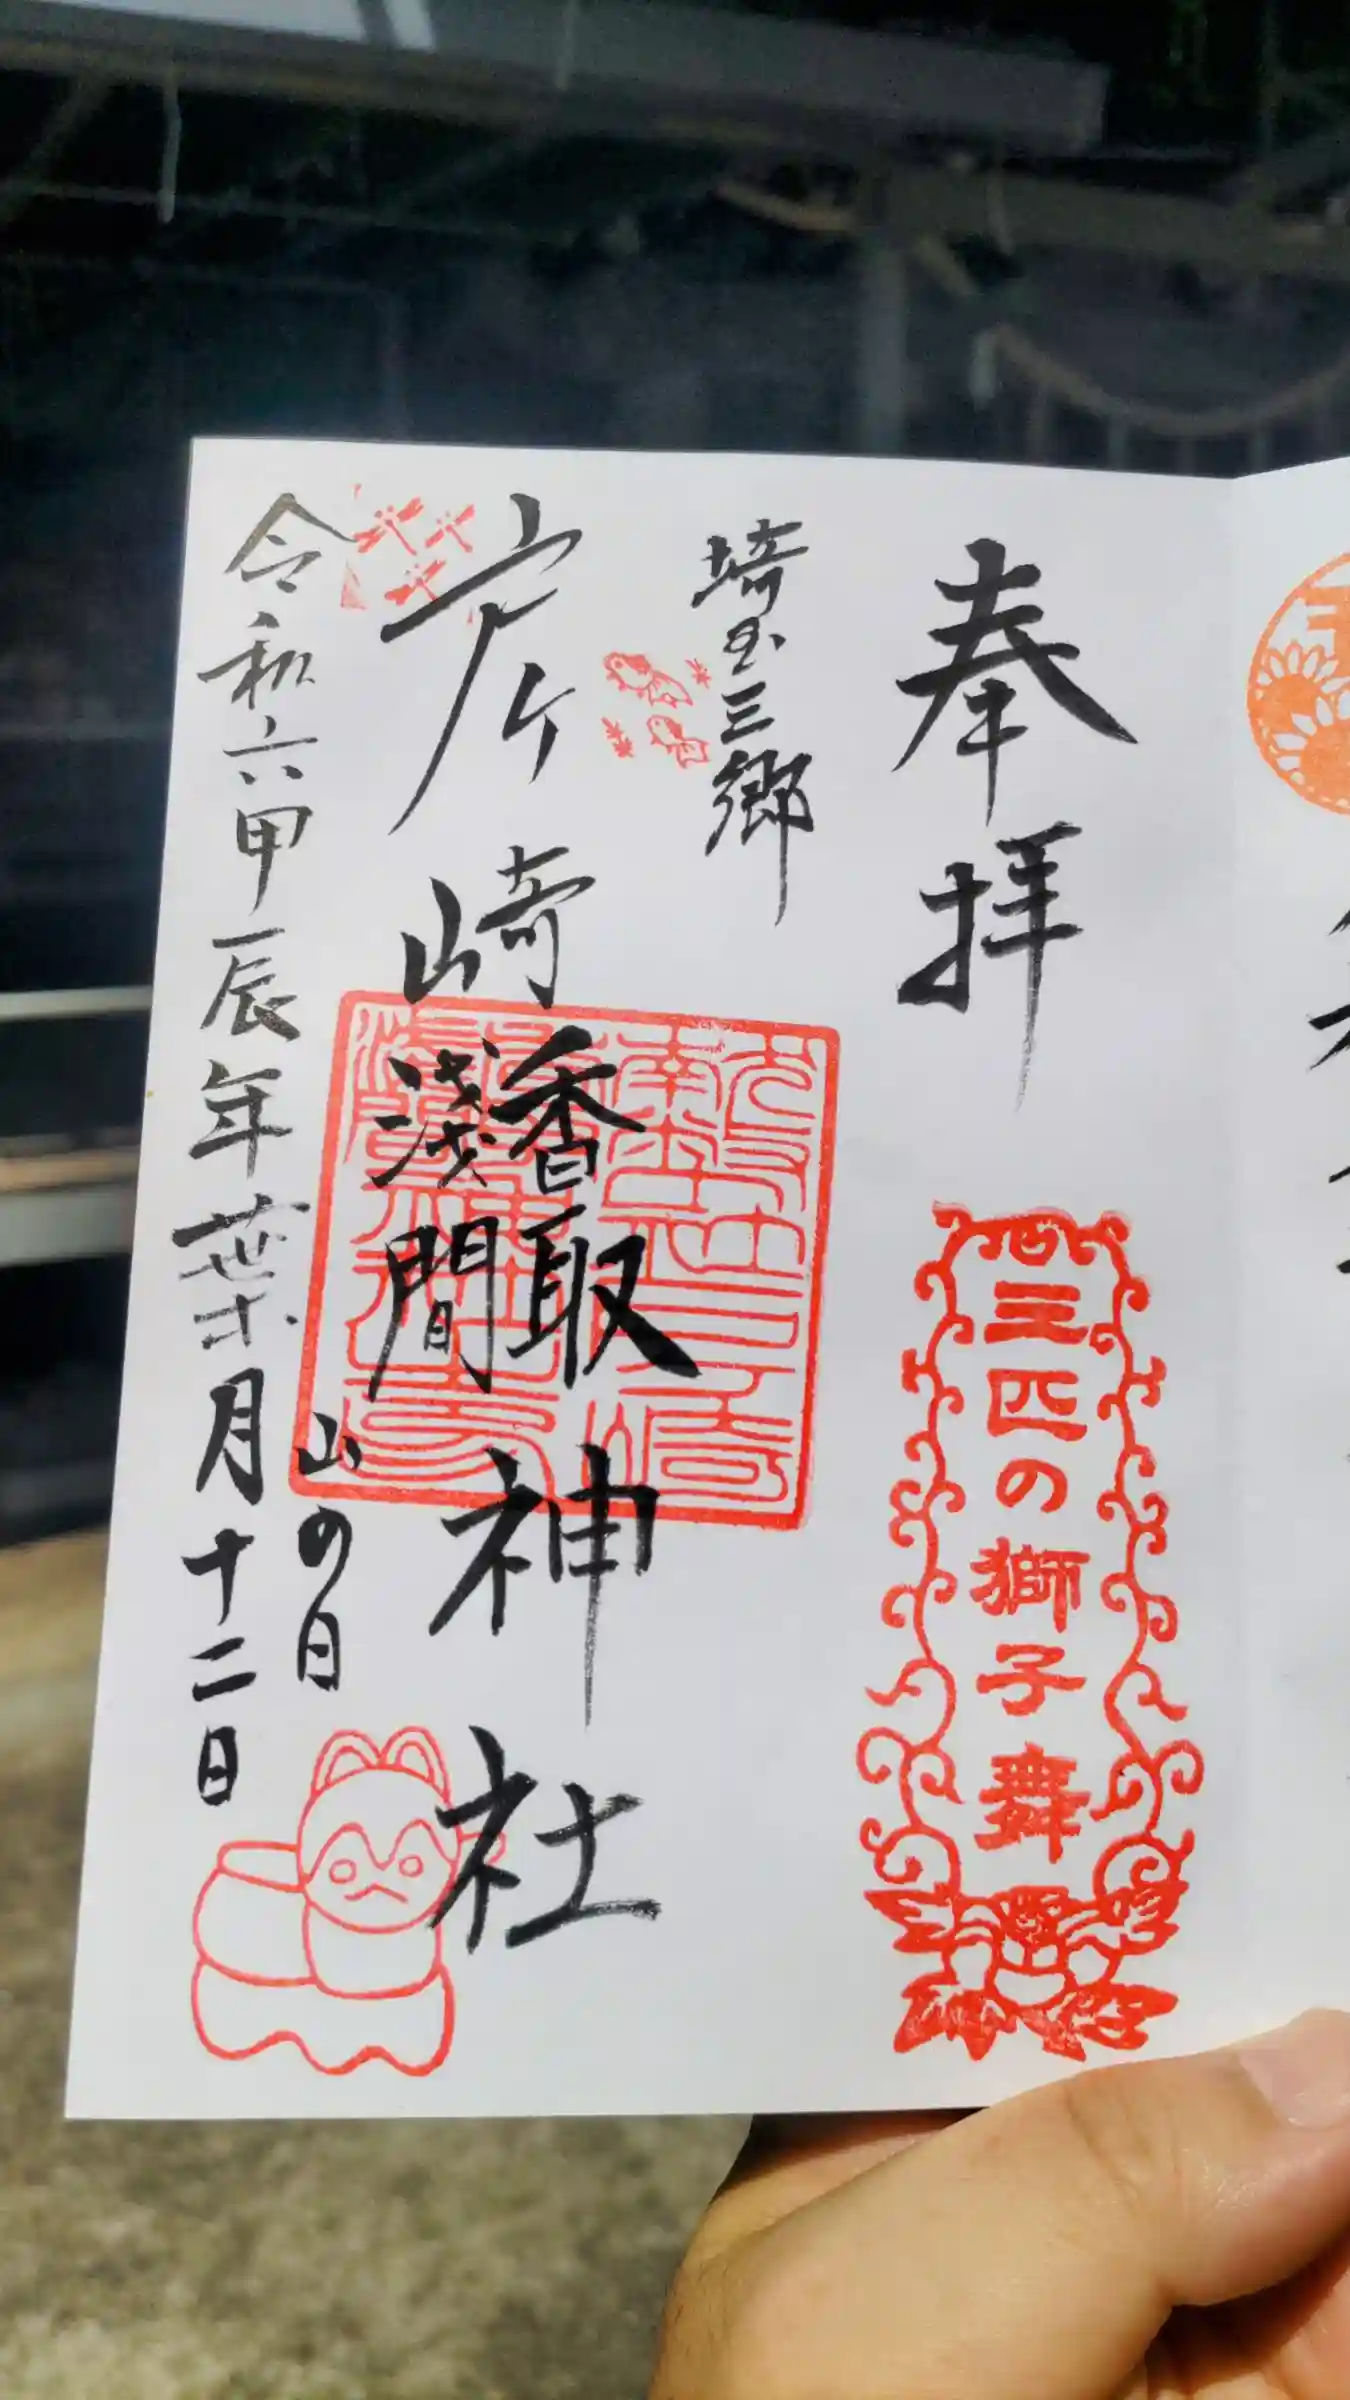 奉拝
三匹の獅子舞
埼玉三郷
戸ケ崎
香取
浅間
神社
山の日
令和六甲辰年葉月十二日